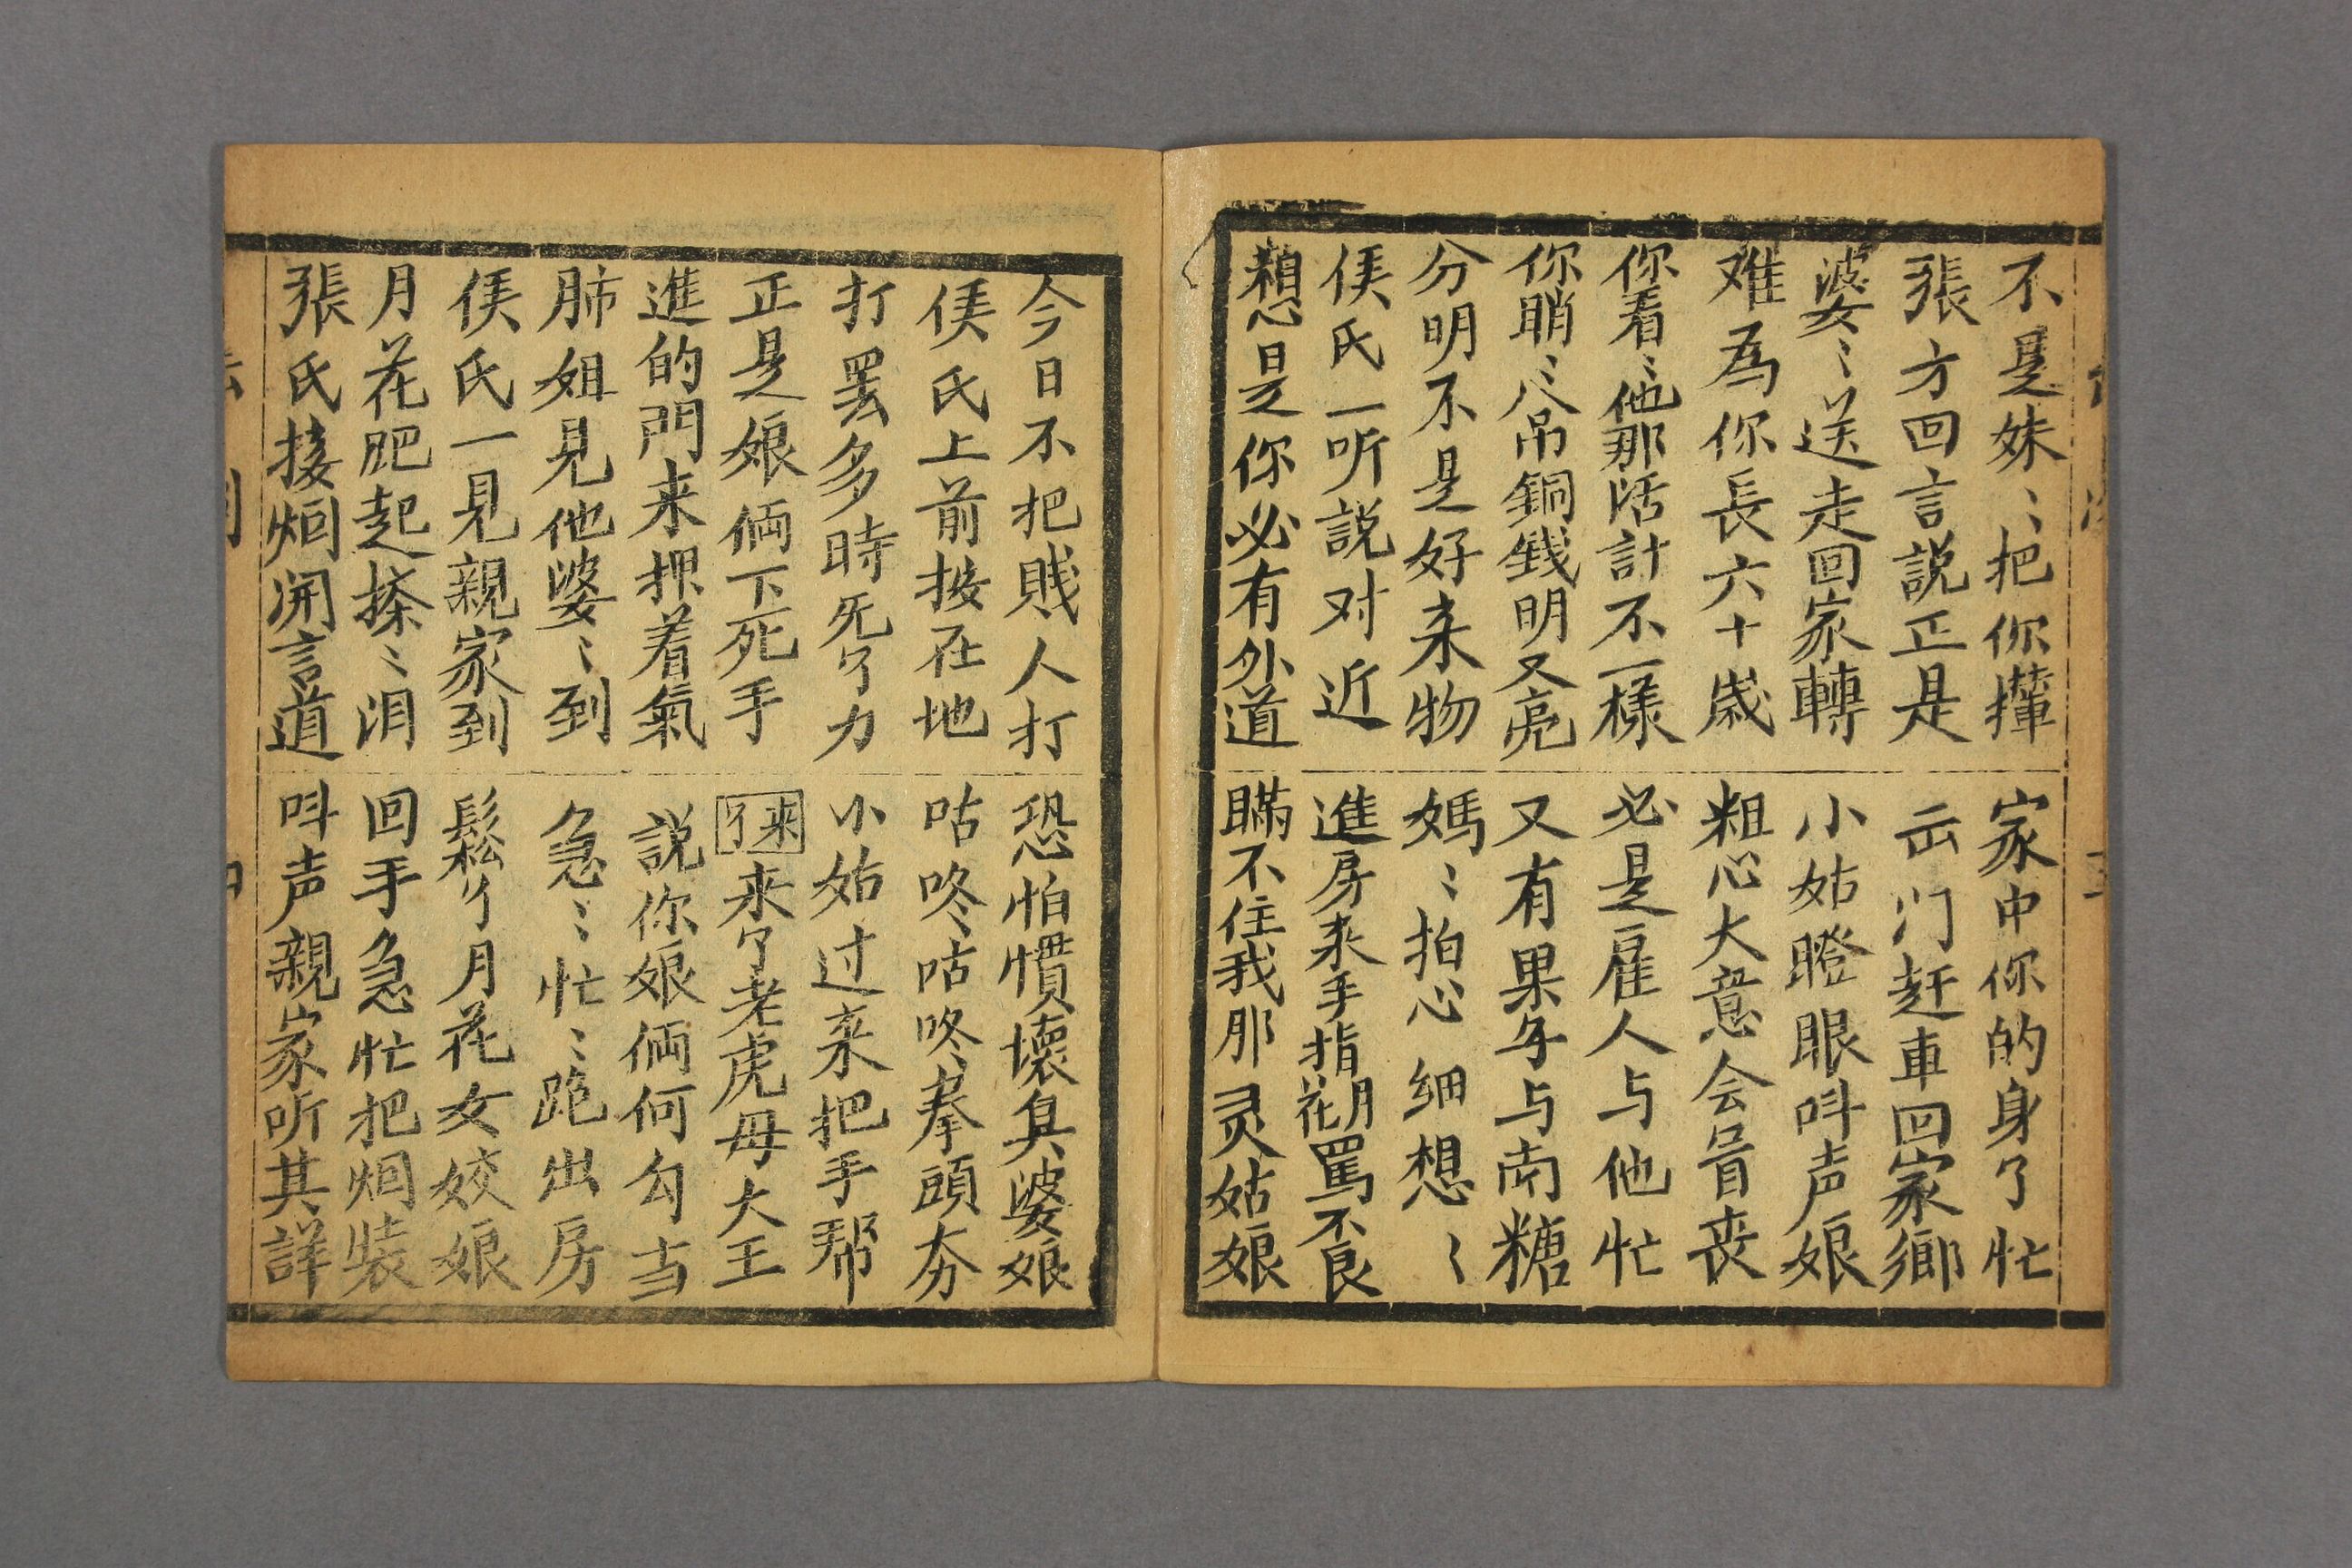 不是妹〻把你撵 家中你的身了忙
張方回言説正是 出门赶車回家鄉
婆〻送走回家轉 小姑瞪眼呌声娘
难為你長六十歲 粗心大意会冒丧
你看〻他那活計不一樣 必是雇人与他忙
你睄〻八吊銅銭明又亮 又有果子与南糖
分明不是好来物 媽〻拍心細想〻
侯氏一听説对近 進房来手指月花罵不良
想必是你必有外道 瞞不住我那灵姑娘
今日不把賎人打 恐怕慣壞臭婆娘
侯氏上前按在地 咕咚咕咚拳頭夯
打罢多時死了力 小姑过来把手帮
正是娘俩下死手 来了来了老虎母大王
進的門来押着氣 説你娘俩何勾当
肺姐見他婆〻到 急〻忙〻跑出房
侯氏一見親家到 鬆了月花女姣娘
月花肥起搽〻泪 回手急忙把烟装
張氏接烟開言道 呌声親家听其詳